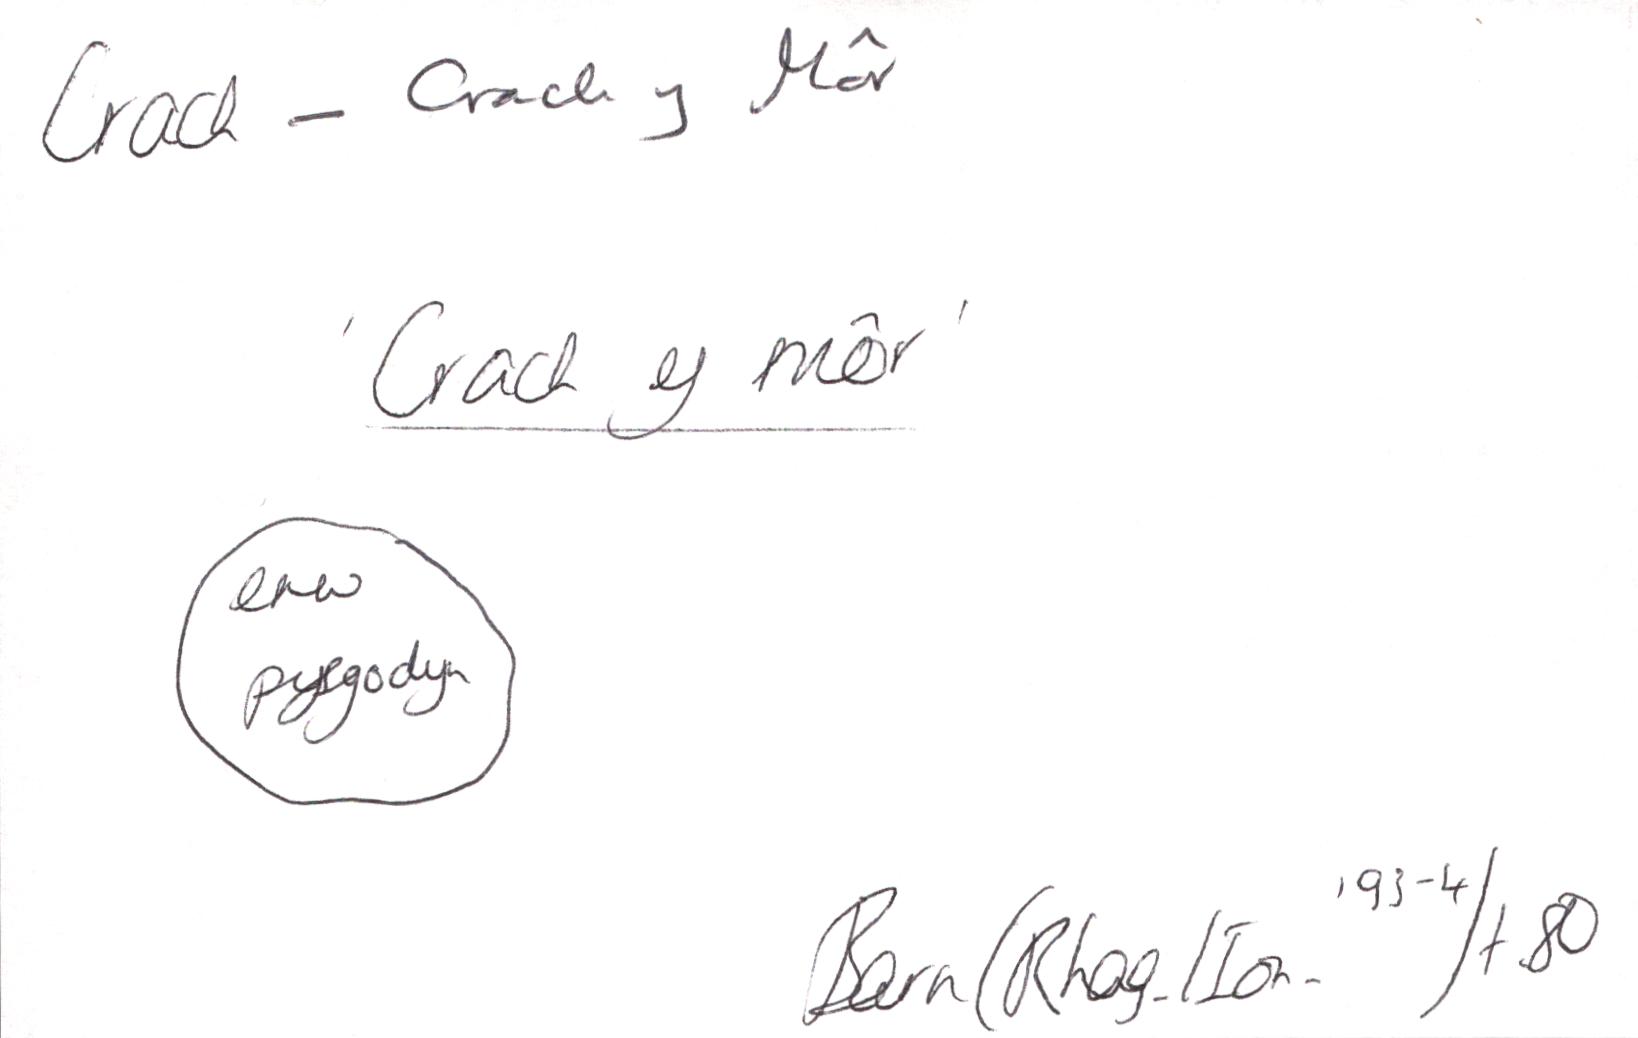 Crach – Crach y Môr
'Crach y môr'
enw
pysgodyn
Barn (Rhag./Ion. '93-4) t.80